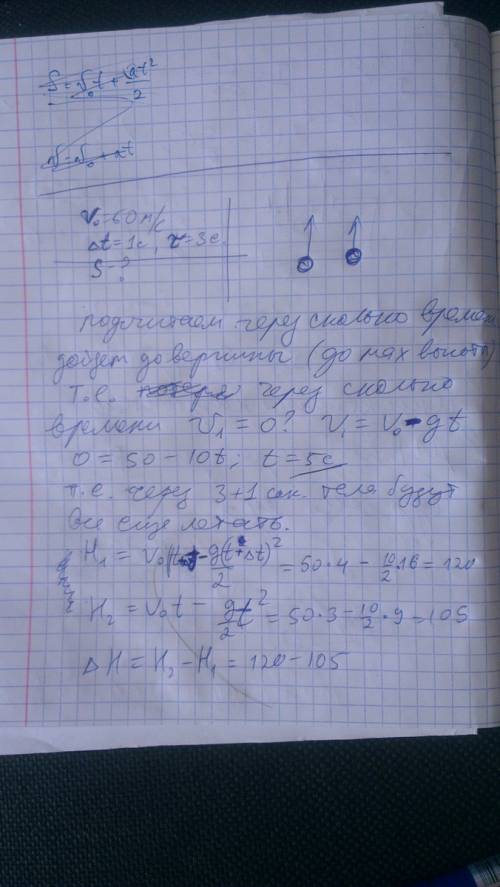 S = v₀t + at²/2
v = v₀ + at
v₀ = 60 м/с
Δt = 1с, τ = 3с.
S - ?
Подсчитаем через сколько времени
дойдет до вершины (до max высоты)
т.е. через сколько
времени v₁ = 0? v₁ = v₀ - gt
0 = 50 - 10t; t = 5с
т.е. через 3+1 сек. тела будут
все еще летать.
H₁ = v₀ - g(t+Δt)²/2 = 50·4 - 10/2·16 = 120
H₂ = v₀t - gt²/2 = 50·3 - 10/2·9 = 105
ΔH = H₂ - H₁ = 120 - 105